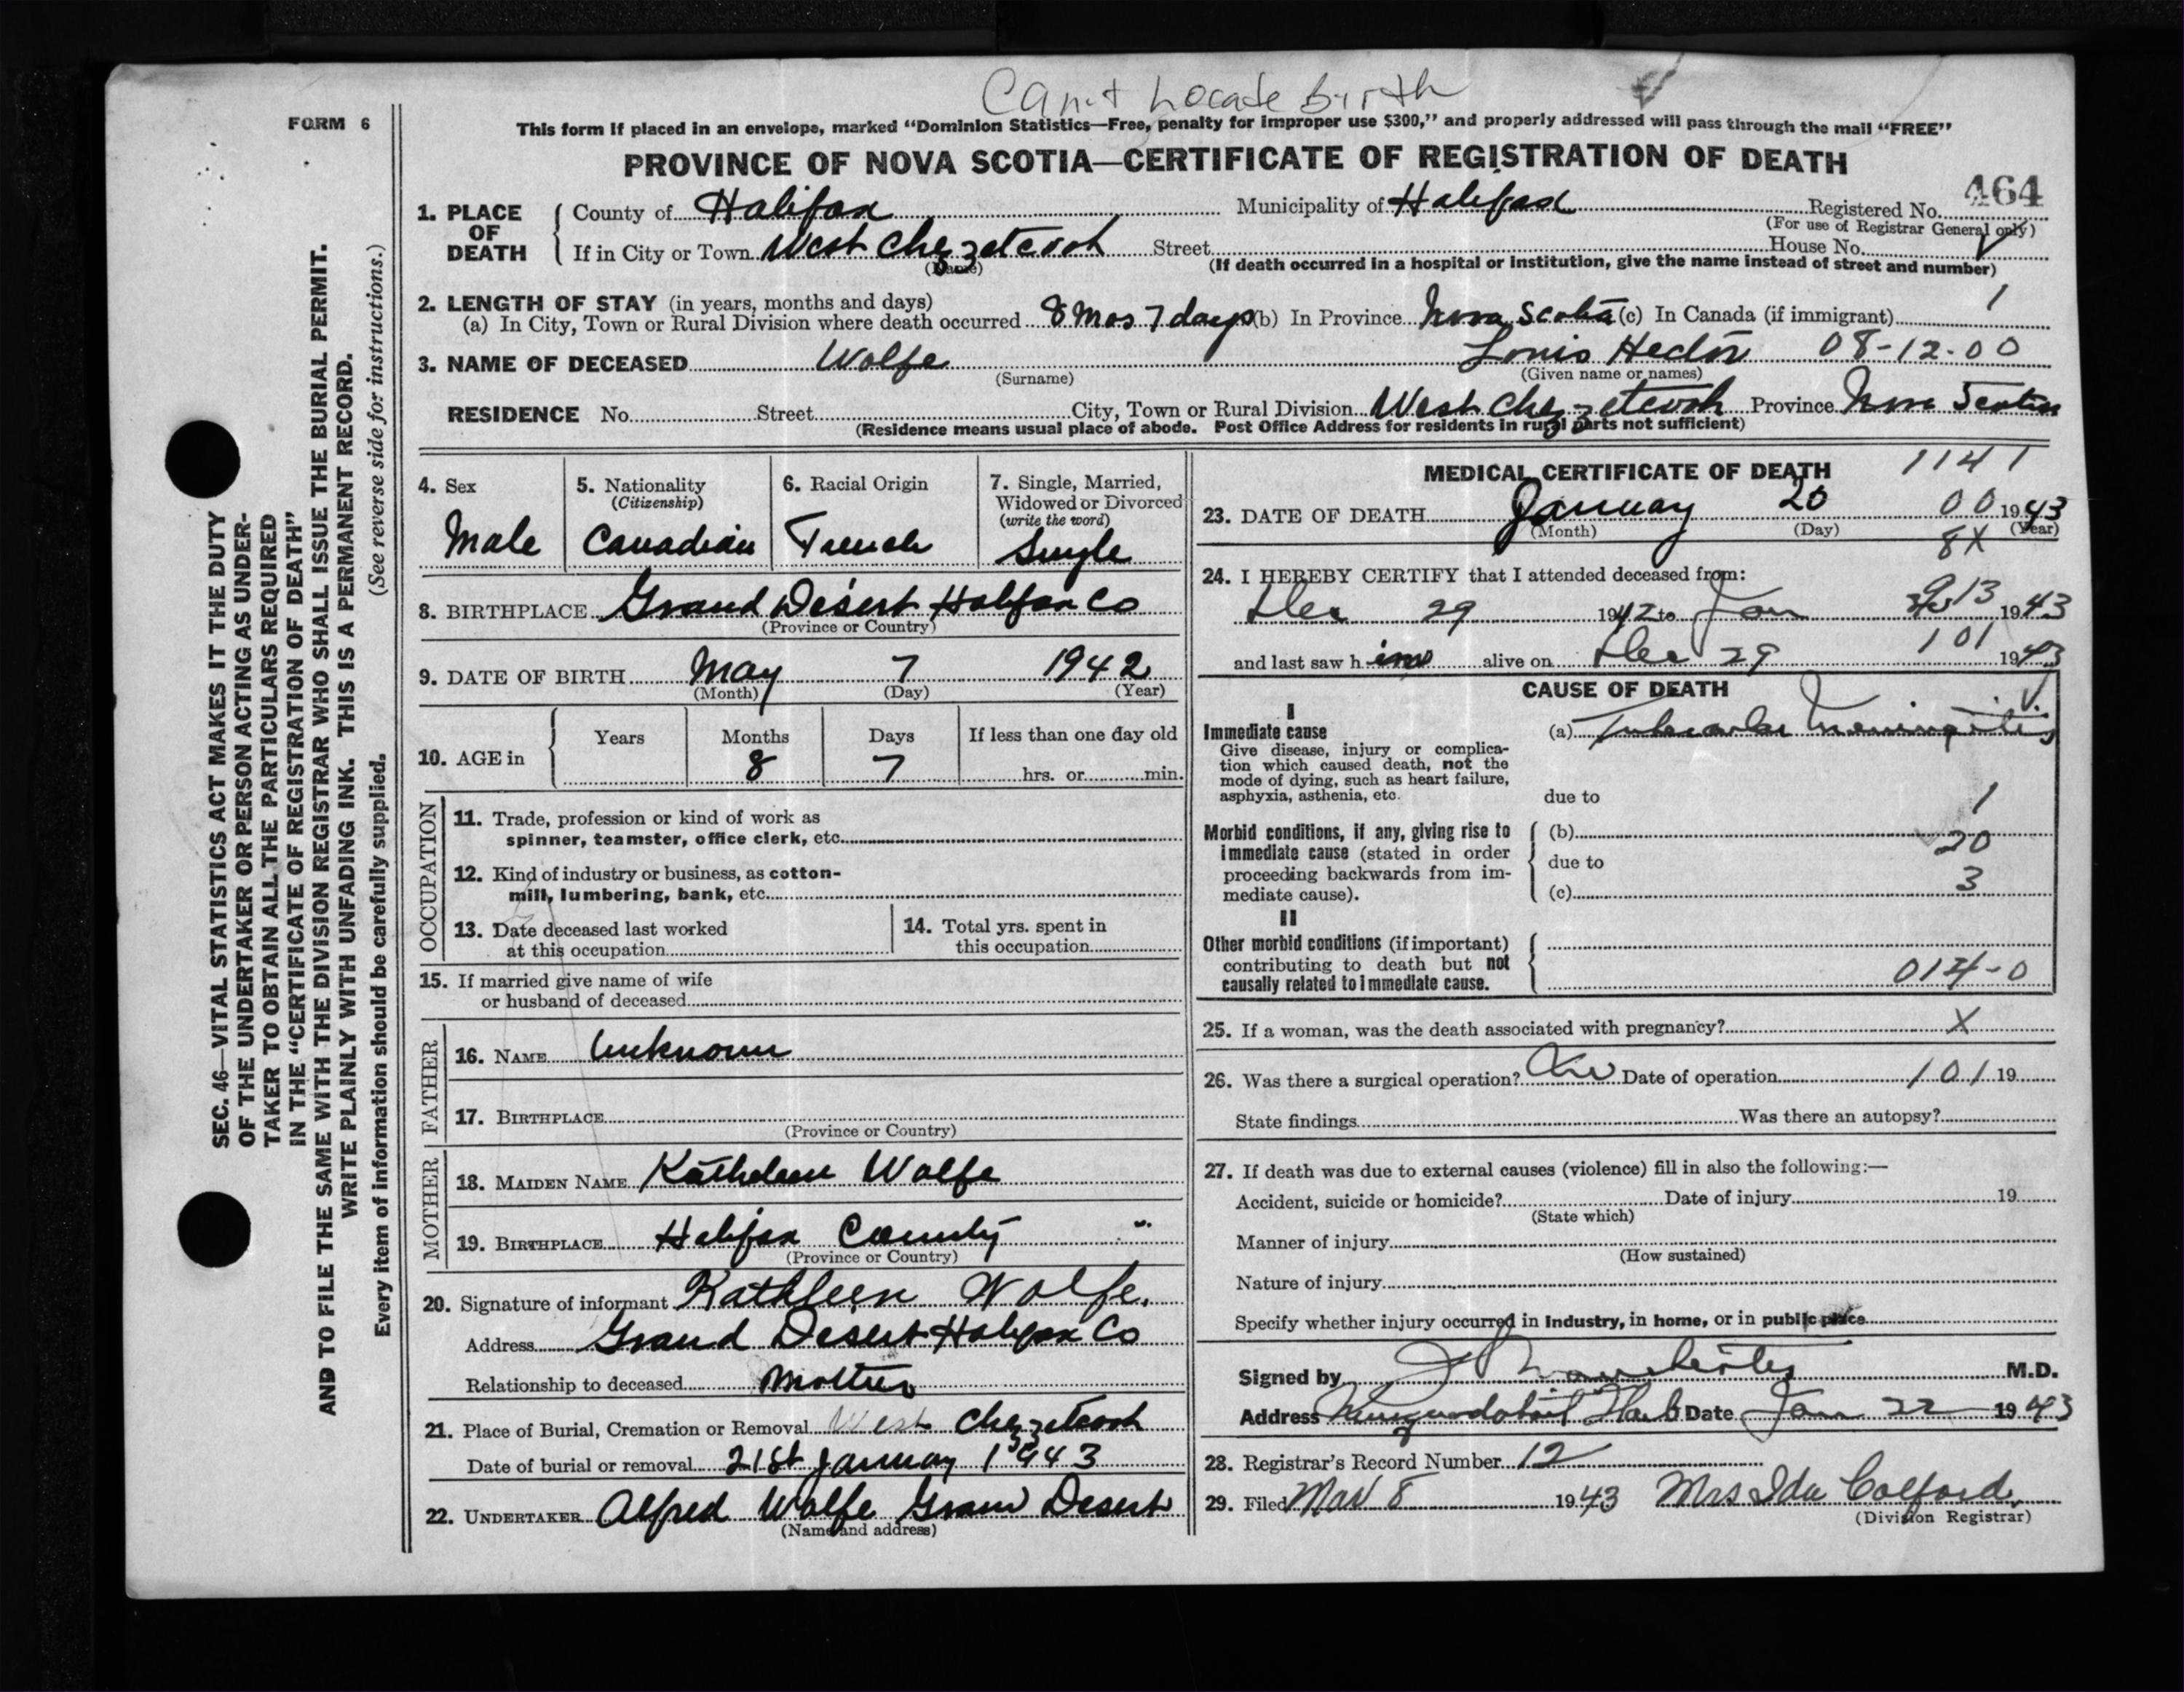 Can't Locate Birth
FORM 6
This form if placed in an envelope, marked "Dominion Statistics—Free, penalty for improper use $300," and properly addressed will pass through the mail "FREE"
PROVINCE OF NOVA SCOTIA—CERTIFICATE OF REGISTRATION OF DEATH
464
1. PLACE OF DEATH { County of Halifax Municipality of Halifax Registered No.
(For use of Registrar General only)
If in City or Town West Chezzetcook Street House No. V
(Name) (If death occurred in a hospital or institution, give the name instead of street and number)
2. LENGTH OF STAY (in years, months and days) 1
(a) In City, Town or Rural Division where death occurred 8 Mos 7 days (b) In Province Nova Scotia (c) In Canada (if immigrant)
3. NAME OF DECEASED Wolfe Louis Hector 08-12-00
(Surname) (Given name or names)
RESIDENCE No. Street City, Town or Rural Division West Chezzetcook Province Nova Scotia
(Residence means usual place of abode. Post Office Address for residents in rural parts not sufficient)
4. Sex 5. Nationality (Citizenship) 6. Racial Origin 7. Single, Married, Widowed or Divorced (write the word)
Male Canadian French Single
8. BIRTHPLACE Grand Desert Halifax Co
(Province or Country)
9. DATE OF BIRTH May 7 1942
(Month) (Day) (Year)
10. AGE in { Years Months Days If less than one day old
8 7 hrs. or min.
OCCUPATION
11. Trade, profession or kind of work as
spinner, teamster, office clerk, etc.
12. Kind of industry or business, as cotton-
mill, lumbering, bank, etc.
13. Date deceased last worked
at this occupation
14. Total yrs. spent in
this occupation
15. If married give name of wife
or husband of deceased
FATHER
16. NAME Unknown
17. BIRTHPLACE
(Province or Country)
MOTHER
18. MAIDEN NAME Katheleen Wolfe
19. BIRTHPLACE Halifax County "
(Province or Country)
20. Signature of informant Kathleen Wolfe.
Address Grand Desert Halifax Co
Relationship to deceased Mother
21. Place of Burial, Cremation or Removal West Chezzetcook
Date of burial or removal 21st January 1943
22. UNDERTAKER Alfred Wolfe Grand Desert
(Name and address)
MEDICAL CERTIFICATE OF DEATH 1141
23. DATE OF DEATH January 20 00 1943
(Month) (Day) (Year)
8X
24. I HEREBY CERTIFY that I attended deceased from:
Dec 29 1942 to Jan 13 1943
and last saw him alive on Dec 29 101 1943
CAUSE OF DEATH
I
Immediate cause
Give disease, injury or complica-
tion which caused death, not the
mode of dying, such as heart failure,
asphyxia, asthenia, etc.
(a) Tubercular Meningitis V
due to 1
Morbid conditions, if any, giving rise to
immediate cause (stated in order
proceeding backwards from im-
mediate cause).
(b) 20
due to
(c) 3
II
Other morbid conditions (if important)
contributing to death but not
causally related to immediate cause.
014-0
25. If a woman, was the death associated with pregnancy? X
26. Was there a surgical operation? No Date of operation 101 19
State findings Was there an autopsy?
27. If death was due to external causes (violence) fill in also the following:—
Accident, suicide or homicide? Date of injury 19
(State which)
Manner of injury
(How sustained)
Nature of injury
Specify whether injury occurred in industry, in home, or in public place
Signed by M.D.
Address Musquodoboit Harb Date Jan 22 1943
28. Registrar's Record Number 12
29. Filed Mar 8 1943 Mrs Ida Colford,
(Division Registrar)
SEC. 46—VITAL STATISTICS ACT MAKES IT THE DUTY
OF THE UNDERTAKER OR PERSON ACTING AS UNDER-
TAKER TO OBTAIN ALL THE PARTICULARS REQUIRED
IN THE "CERTIFICATE OF REGISTRATION OF DEATH"
AND TO FILE THE SAME WITH THE DIVISION REGISTRAR WHO SHALL ISSUE THE BURIAL PERMIT.
WRITE PLAINLY WITH UNFADING INK. THIS IS A PERMANENT RECORD.
(See reverse side for instructions.)
Every item of information should be carefully supplied.